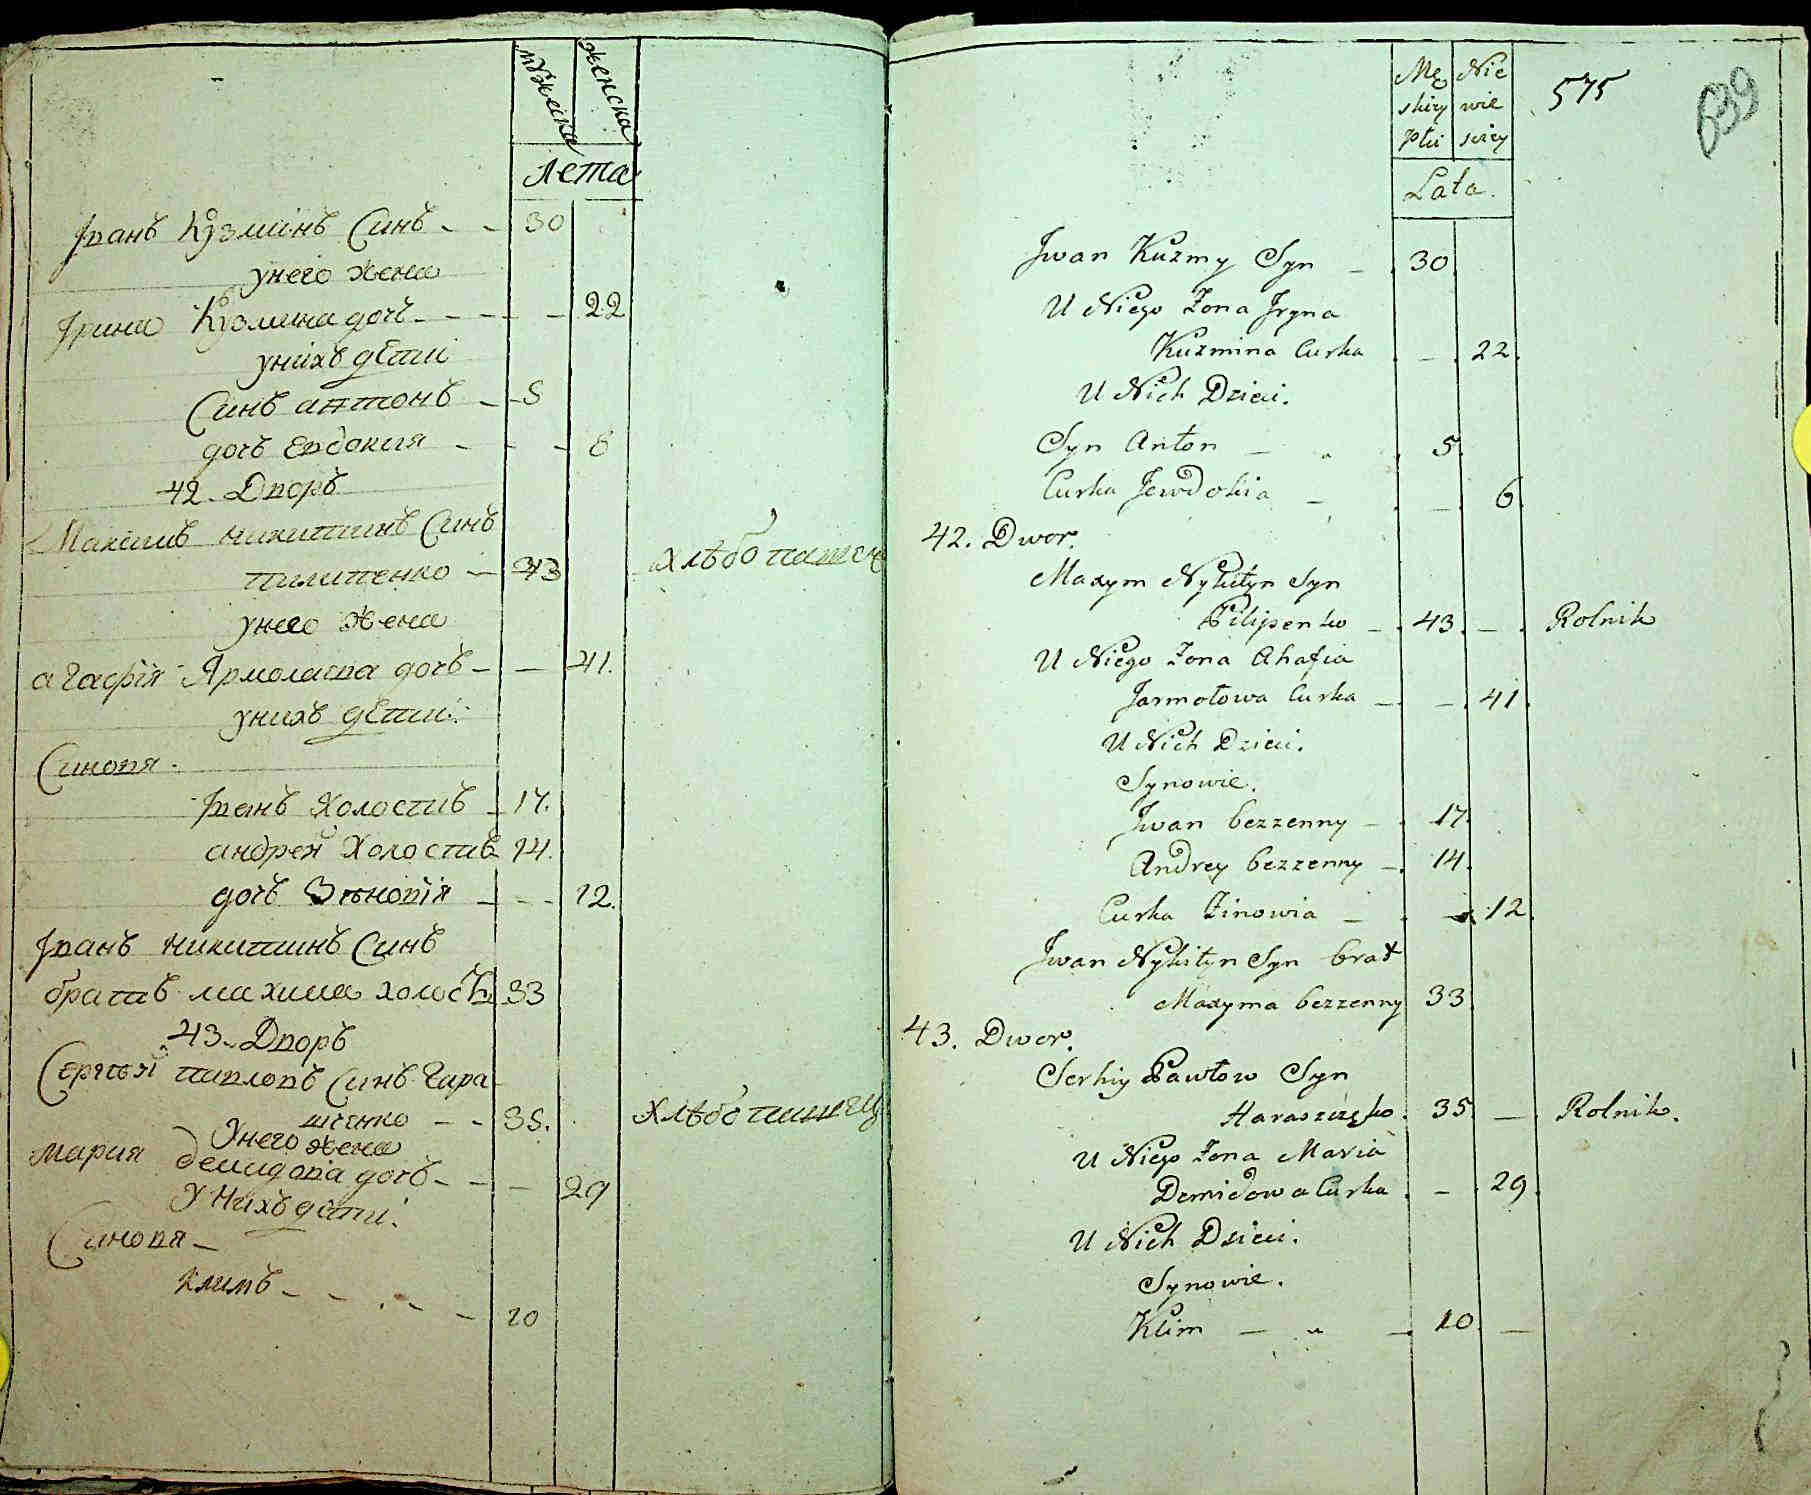 мужеска
женска
Лета
Іванъ Кузминъ Синъ - - 30
унего жена
Ірина Кузмина дочъ - - - - - 22
унихъ дѣти
Синъ антонъ - - 5
дочъ Евдокия - - - 6
42. Дворъ
Максимъ никитинъ Синъ
пилипенко - 43 хлѣбопашец
унего жена
агафія Ярмолаева дочъ - - 41.
унихъ дѣти:
Синовя -
Іванъ холостив - 17.
андрей холостив 14.
дочъ Зѣновія - - - 12.
Іванъ никитинъ Синъ
братъ махима холос 33
43. Дворъ
Сергѣй павловъ Синъ Гара
щенко - - 35. хлѣбопашец
Унего жена
Мария демидова дочъ - - - 29
У Нихъ дѣти.
Синовя -
климъ - - - - - 10
Mę Nie
skiey wie
Płci sciey
575
639
Lata.
Jwan Kuzmy Syn - 30
U Niego Zona Jryna
Kuzmina Curka - 22.
U Nich Dzieci.
Syn Anton - " 5.
Curka Jewdokia - - 6
42. Dwor.
Maxym Nykityn Syn
Pilipenko - 43. - Rolnik
U Niego Zona Ahafia
Jarmołowa Curka - - 41
U Nich Dzieci.
Synowie.
Jwan bezzenny - 17.
Andrey bezzenny - 14.
Curka Zinowia - - 12
Jwan Nykityn Syn brat
Maxyma bezzenny 33
43. Dwor.
Serhiy Pawłow Syn
Haraszczęko. 35 - Rolnik.
U Niego Zona Maria
Demidowa Curka. - 29.
U Nich Dzieci.
Synowie.
Klim - " - 10. -